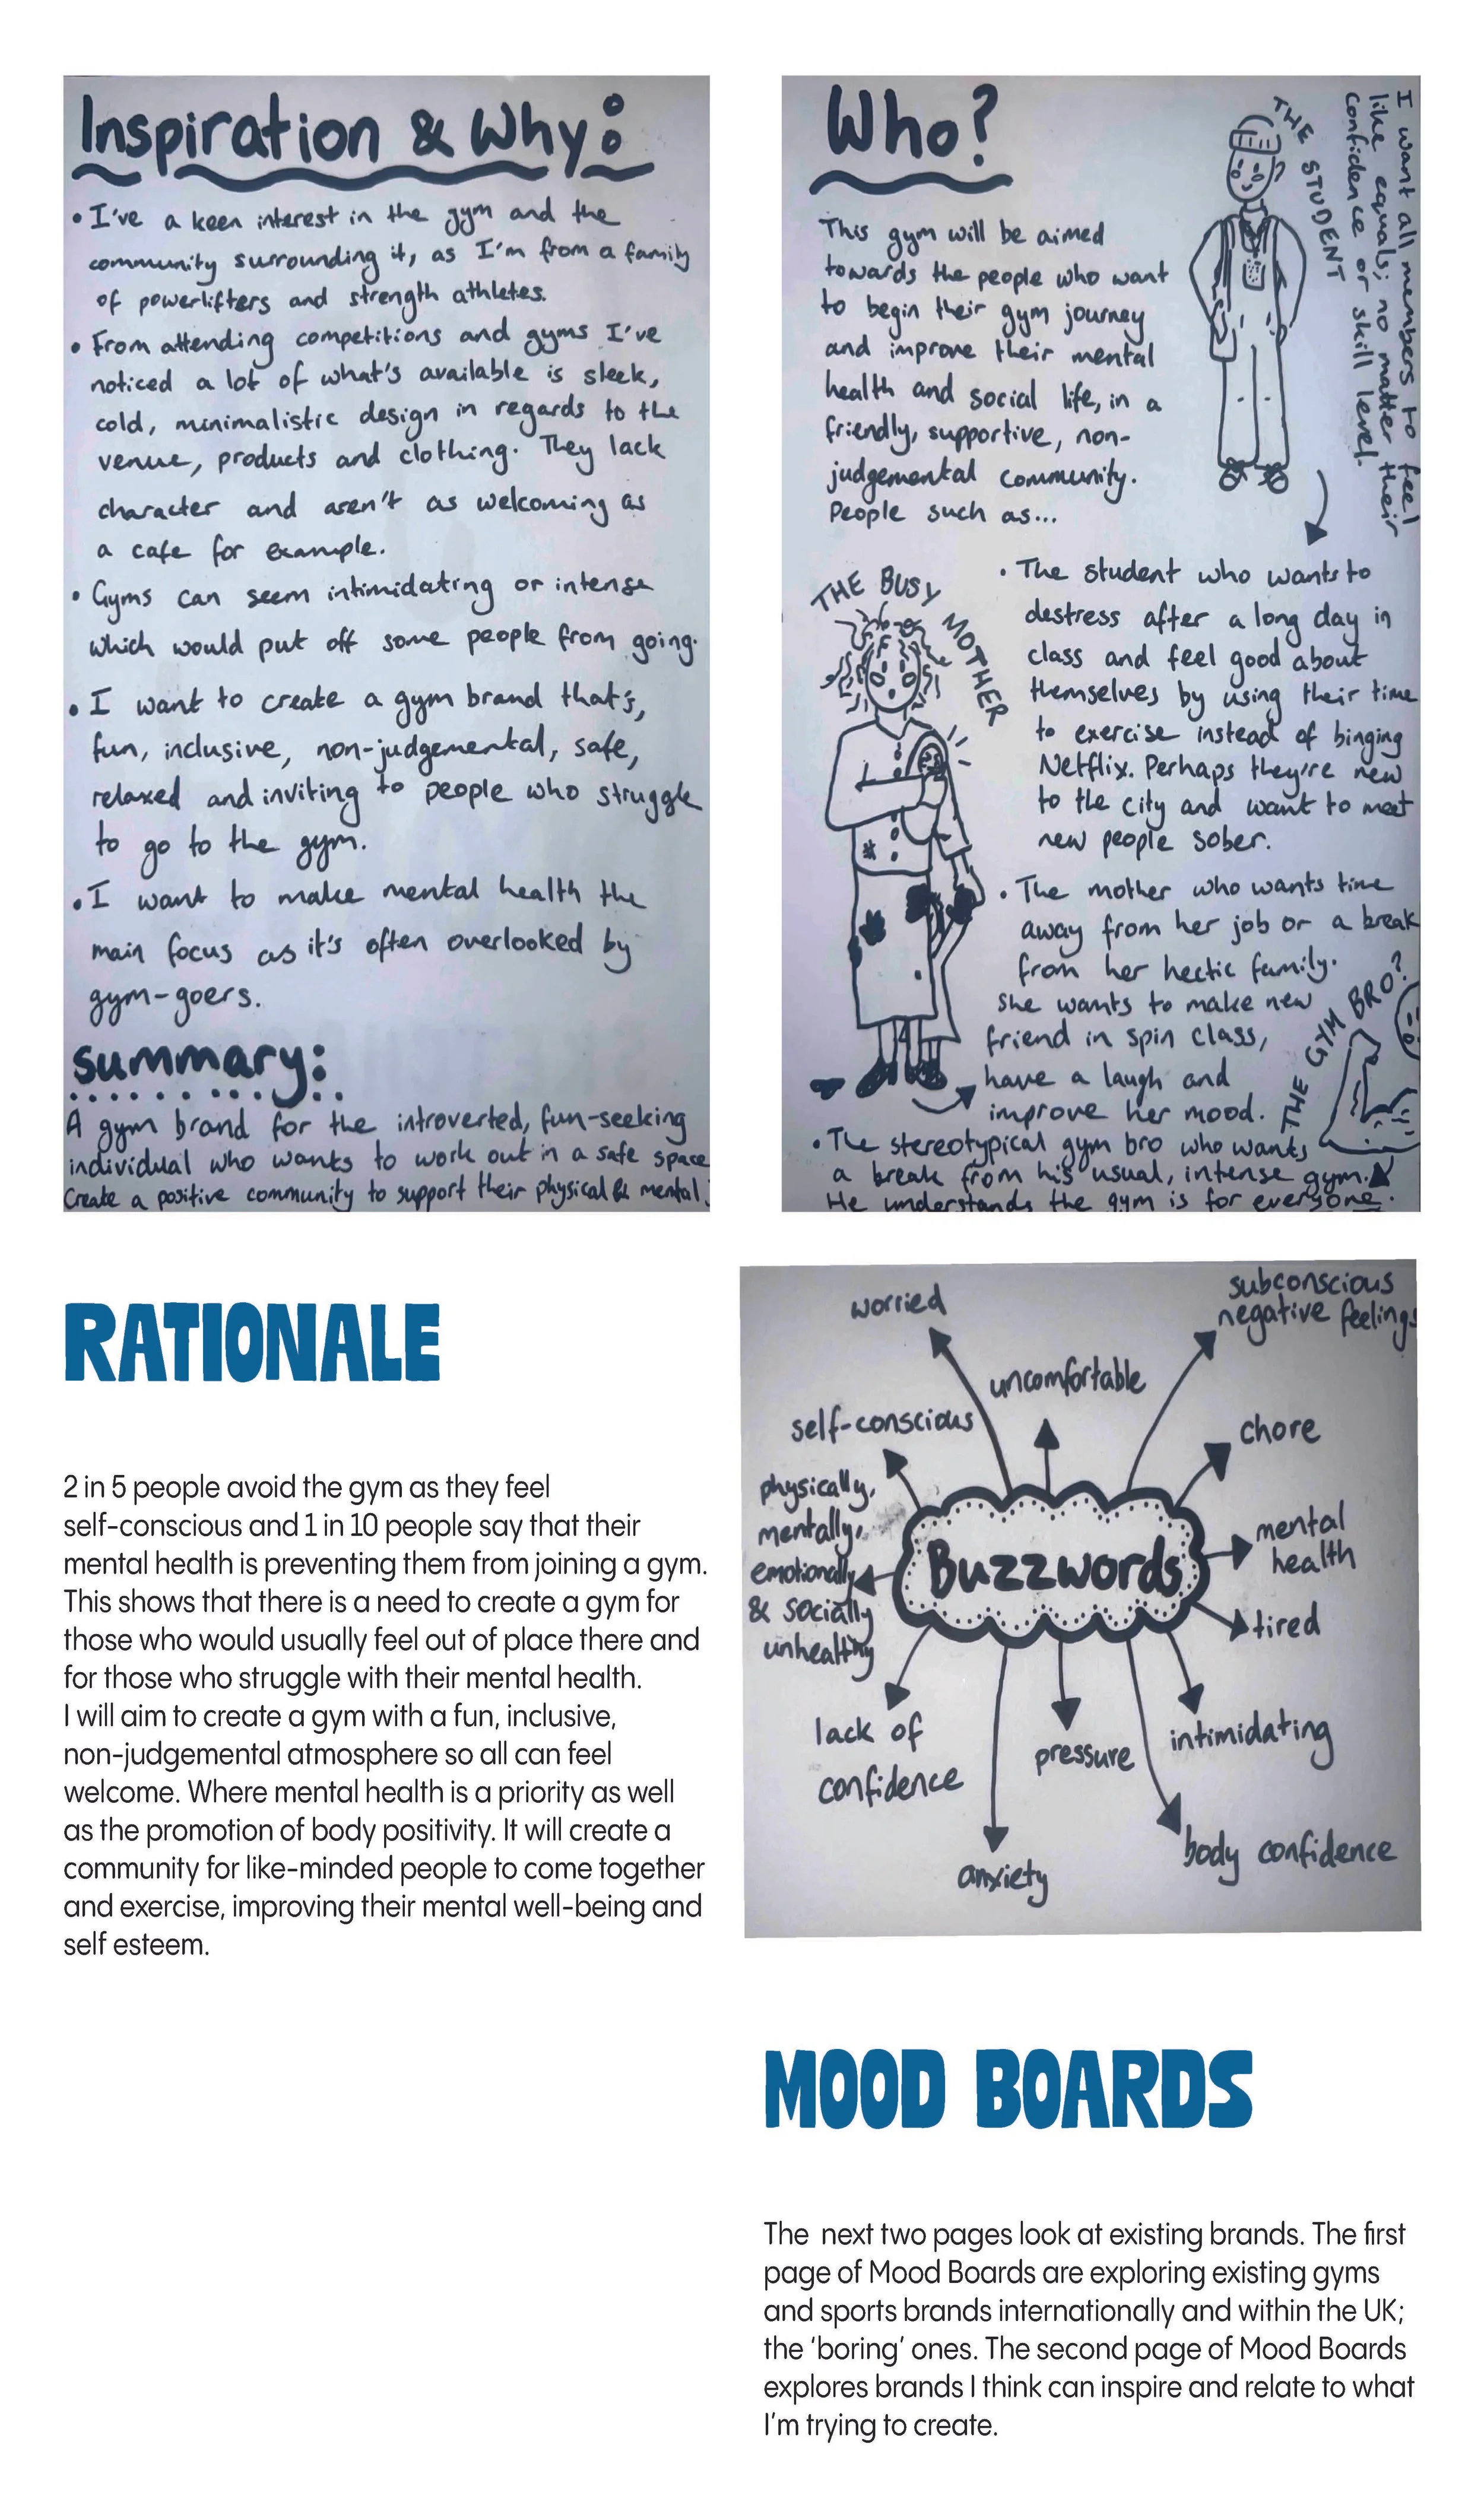 Inspiration & Why:
• I've a keen interest in the gym and the
community surrounding it, as I'm from a family
of powerlifters and strength athletes.
• From attending competitions and gyms I've
noticed a lot of what's available is sleek,
cold, minimalistic design in regards to the
venue, products and clothing. They lack
character and aren't as welcoming as
a cafe for example.
• Gyms can seem intimidating or intense
which would put off some people from going.
• I want to create a gym brand that's,
fun, inclusive, non-judgemental, safe,
relaxed and inviting to people who struggle
to go to the gym.
• I want to make mental health the
main focus as it's often overlooked by
gym-goers.
Summary:
A gym brand for the introverted, fun-seeking
individual who wants to work out in a safe space
Create a positive community to support their physical & mental.
Who?
This gym will be aimed
towards the people who want
to begin their gym journey
and improve their mental
health and social life, in a
friendly, supportive, non-
judgemental community.
People such as...
THE STUDENT
I want all members to feel
like equals; no matter their
confidence or skill level.
THE BUSY MOTHER
• The student who wants to
destress after a long day in
class and feel good about
themselves by using their time
to exercise instead of binging
Netflix. Perhaps they're new
to the city and want to meet
new people sober.
• The mother who wants time
away from her job or a break
from her hectic family.
She wants to make new
friend in spin class,
have a laugh and
improve her mood.
THE GYM BRO?
• The stereotypical gym bro who wants
a break from his usual, intense gym.
He understands the gym is for everyone.
RATIONALE
2 in 5 people avoid the gym as they feel
self-conscious and 1 in 10 people say that their
mental health is preventing them from joining a gym.
This shows that there is a need to create a gym for
those who would usually feel out of place there and
for those who struggle with their mental health.
I will aim to create a gym with a fun, inclusive,
non-judgemental atmosphere so all can feel
welcome. Where mental health is a priority as well
as the promotion of body positivity. It will create a
community for like-minded people to come together
and exercise, improving their mental well-being and
self esteem.
worried
subconscious
negative feelings
uncomfortable
self-conscious
chore
physically,
mentally,
emotionally
& socially
unhealthy
Buzzwords
mental
health
tired
lack of
confidence
pressure
intimidating
anxiety
body confidence
MOOD BOARDS
The next two pages look at existing brands. The first
page of Mood Boards are exploring existing gyms
and sports brands internationally and within the UK;
the ‘boring’ ones. The second page of Mood Boards
explores brands I think can inspire and relate to what
I'm trying to create.